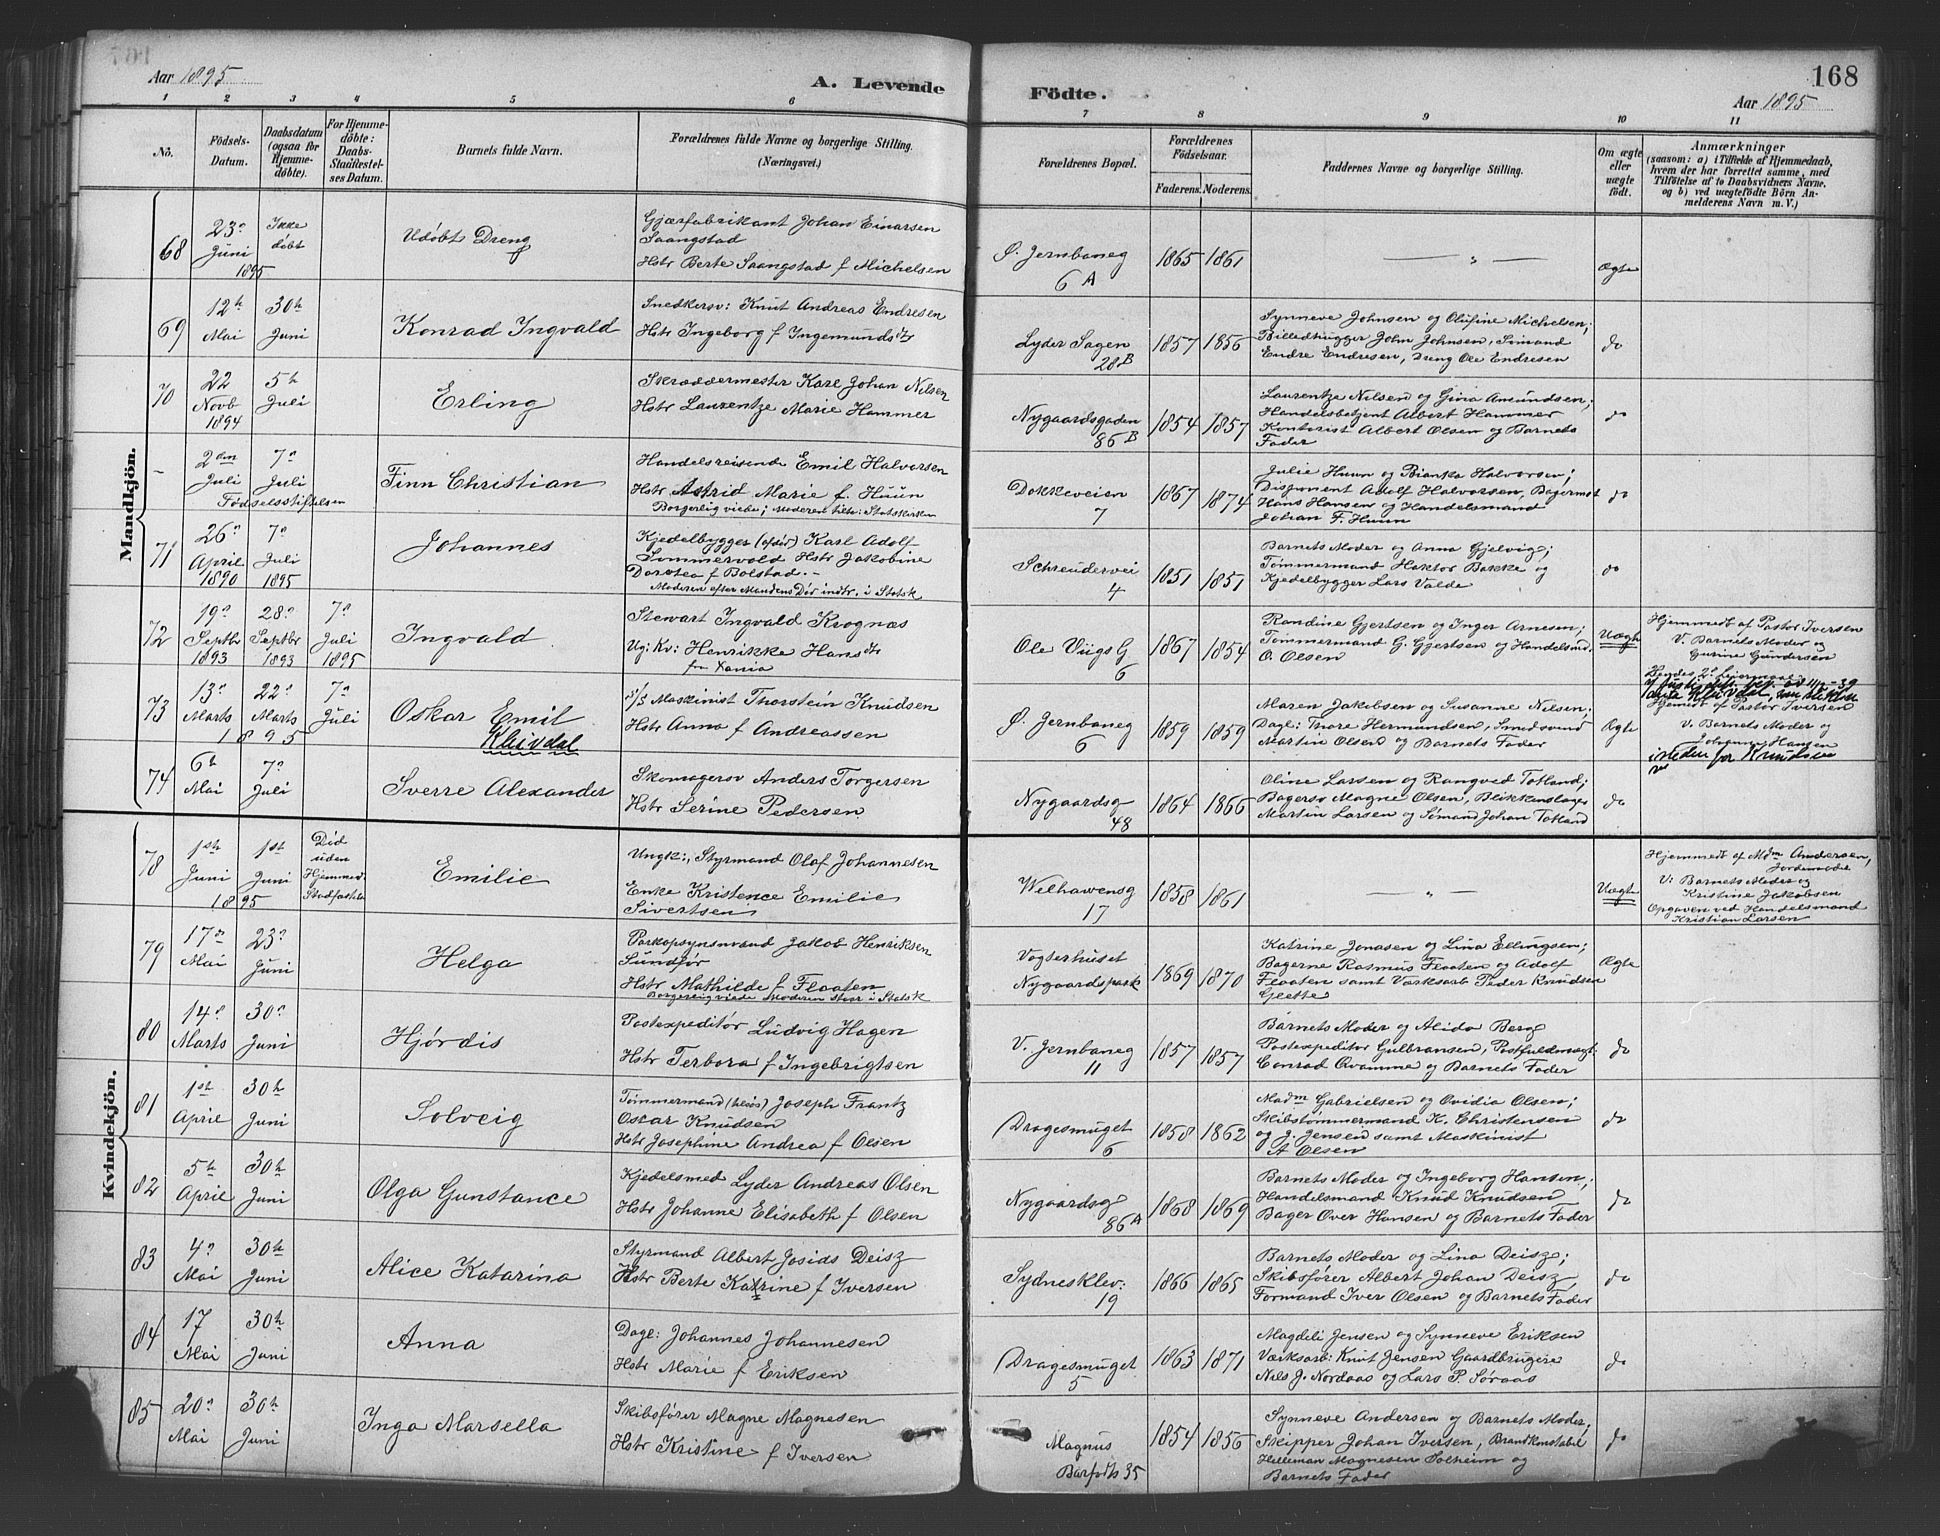 168
Aar 1895
A. Levende Födte.
Aar 1895
1 2 3 4 5 6 7 8 9 10 11
No.
Födsels-Datum.
Daabsdatum (ogsaa for Hjemmedöbte).
For Hjemmedöbte: Daabs-Stadfæstelses Datum.
Barnets fulde Navn.
Forældrenes fulde Navne og borgerlige Stilling.
(Næringsvei.)
Forældrenes Bopæl.
Forældrenes Födselsaar.
Faderens. Moderens.
Faddernes Navne og borgerlige Stilling.
Om ægte eller uægte födt.
Anmærkninger
(saasom: a) i Tilfælde af Hjemmedaab,
hvem der har forrettet samme, med
Tilföielse af to Daabsvidners Navne,
og b) ved uægtefödte Börn Anmelderens Navn m. V.)
Mandkjön.
68 23de Juni 1895 Ikke døbt
Udøbt Dreng
Gjærfabrikant Johan Einarsen
Saangstad
Hstr Berte Saangstad f Michelsen
Ø. Jernbaneg 6A 1865 1861 — " — Ægte
69 12te Mai 30te Juni
Konrad Ingvald
Snedkersv: Knut Andreas Endresen
Hstr Ingeborg f Ingemundsdtr
Lyder Sagen 28B 1857 1856
Synneve Johnsen og Olufine Michelsen;
Billedhugger John Johnsen, Sømand
Endre Endresen, Dreng Ole Endresen
do
70 22 Novb 1894 5te Juli
Erling
Skræddermester Karl Johan Nilsen
Hstr Laurentze Marie Hammer
Nygaardsgaden 86B 1854 1857
Laurentze Nilsen og Gina Amundsen;
Handelsbetjent Albert Hammer
Kontorist Albert Olsen og Barnets
Fader
do
- 2den Juli 7de Juli
Fødselsstiftelsen
Finn Christian
Handelsreisende Emil Halvorsen
Hstr Astrid Marie f. Huun
Borgerlig viede; Moderen tilh: Statskirken
Dokkeveien 7 1867 1874
Julie Huun og Bianka Halvorsen;
Disponent Adolf Halvorsen, Bagermst
Hans Hansen og Handelsmand
Johan F. Huun
do
71 26de April 1890 7de Juli 1895
Johannes
Kjedelbygger (afdø) Karl Adolf
Sommervold Hstr Jakobine
Dorotea f Bolstad. -
Moderen efter Mandens Død indtr. i Statsk
Schreudervei 4 1851 1851
Barnets Moder og Anna Gjelvig;
Tømmermand Haktor Bakke og
Kjedelbygger Lars Valde
do
72 19de Septbr 1893 28de Septbr 1893 7de Juli 1895
Ingvald
Stewart Ingvald Krognæs
Ug: Kv: Henrikke Hansdtr
fra Xania
Ole Viigs G 6 1867 1854
Randine Gjertsen og Inger Arnesen;
Tømmermand G. Gjertsen og Handelsmd
O. Olsen
Uægte
Hjemmedt af Pastor Iversen
V. Barnets Moder og
Gurine Gundersen
Hendes 2det Leiermaal
73 13de Marts 22de Marts 1895 7de Juli
Oskar Emil
Kleivdal
S/S Maskinist Thorstein Knudsen
Hstr Anna f Andreassen
Ø. Jernbaneg 6 1859 1859
Maren Jakobsen og Susanne Nilsen;
Dagl: Thore Hermundsen, Smedsvend
Martin Olsen og Barnets Fader
Ægte
Hjemdt af Pastor Iversen
V. Barnets Moder og
Johanne Hansen
isteden for Knudsen
74 6te Mai 7de Juli
Sverre Alexander
Skomagersv Anders Torgersen
Hstr Serine Pedersen
Nygaardsg 48 1864 1866
Oline Larsen og Rangved Totland;
Bagersv Magne Olsen, Blikkenslager
Martin Larsen og Sømand Johan Totland
do
Kvindekjön.
78 1ste Juni 1ste Juni 1895
Død uden Hjemmed. Stadfæstelse
Emilie
Ungk:, Styrmand Olaf Johannesen
Enke Kristence Emilie
Sivertsen
Welhavensg 17 1858 1861 — " — Uægte
Hjemmedt af Mdm Andersen,
Jordemoder
V: Barnets Moder og
Kristine Jakobsen
Opgaven ved Handelsmand
Kristian Larsen
79 17de Mai 23de Juni
Helga
Parkopsynsmand Jakob Henriksen
Sundfør
Hstr Mathilde f Flaaten
Borgerlig viede Moderen staar i Statsk
Vogterhuset
Nygaardspark 1869 1870
Katrine Jonasen og Lina Ellingsen;
Bagerne Rasmus Flaaten og Adolf
Flaaten samt Værksarb Peder Knudsen
Glette
Ægte
80 14de Marts 30te Juni
Hjørdis
Postexpeditør Ludvig Hagen
Hstr Terbora f Ingebrigtsen
V. Jernbaneg 11 1857 1857
Barnets Moder og Alida Berg
Postexpeditør Gulbransen, Postfuldmægt
Conrad Qvamme og Barnets Fader
do
81 1ste April 30te Juni
Solveig
Tømmermand Joseph Frantz
Oscar Knudsen
Hstr Josephine Andrea f Olsen
Dragesmuget 6 1858 1862
Madm Gabrielsen og Ovidia Olsen;
Skibstømmermand K. Christensen
og J. Jensen samt Maskinist
A Olsen
do
82 5te April 30te Juni
Olga Gunstance
Kjedelsmed Lyder Andreas Olsen
Hstr Johanne Elisabeth f Olsen
Nygaardsg 86A 1868 1869
Barnets Moder og Ingeborg Hansen;
Handelsmand Knud Knudsen
Bager Over Hansen og Barnets Fader
do
83 4de Mai 30te Juni
Alice Katarina
Styrmand Albert Josias Deisz
Hstr Berte Katrine f Iversen
Sydnesklev: 19 1866 1865
Barnets Moder og Lina Deisz;
Skibsfører Albert Johan Deisz,
Formand Iver Olsen og Barnets Fader
do
84 17 Mai 30te Juni
Anna
Dagl: Johannes Johannesen
Hstr Marie f Eriksen
Dragesmuget 5 1863 1871
Magdeli Jensen og Synneve Eriksen
Værksarb: Knut Jensen Gaardbrugere
Nils J. Nordaas og Lars P. Søraas
do
85 20de Mai 30te Juni
Inga Marsella
Skibsfører Magne Magnesen
Hstr Kristine f Iversen
Magnus
Barfodts 35 1854 1856
Synneve Andersen og Barnets Moder;
Skipper Johan Iversen, Brandkonstabel
Helleman Magnesen Solheim og
Barnets Fader
do